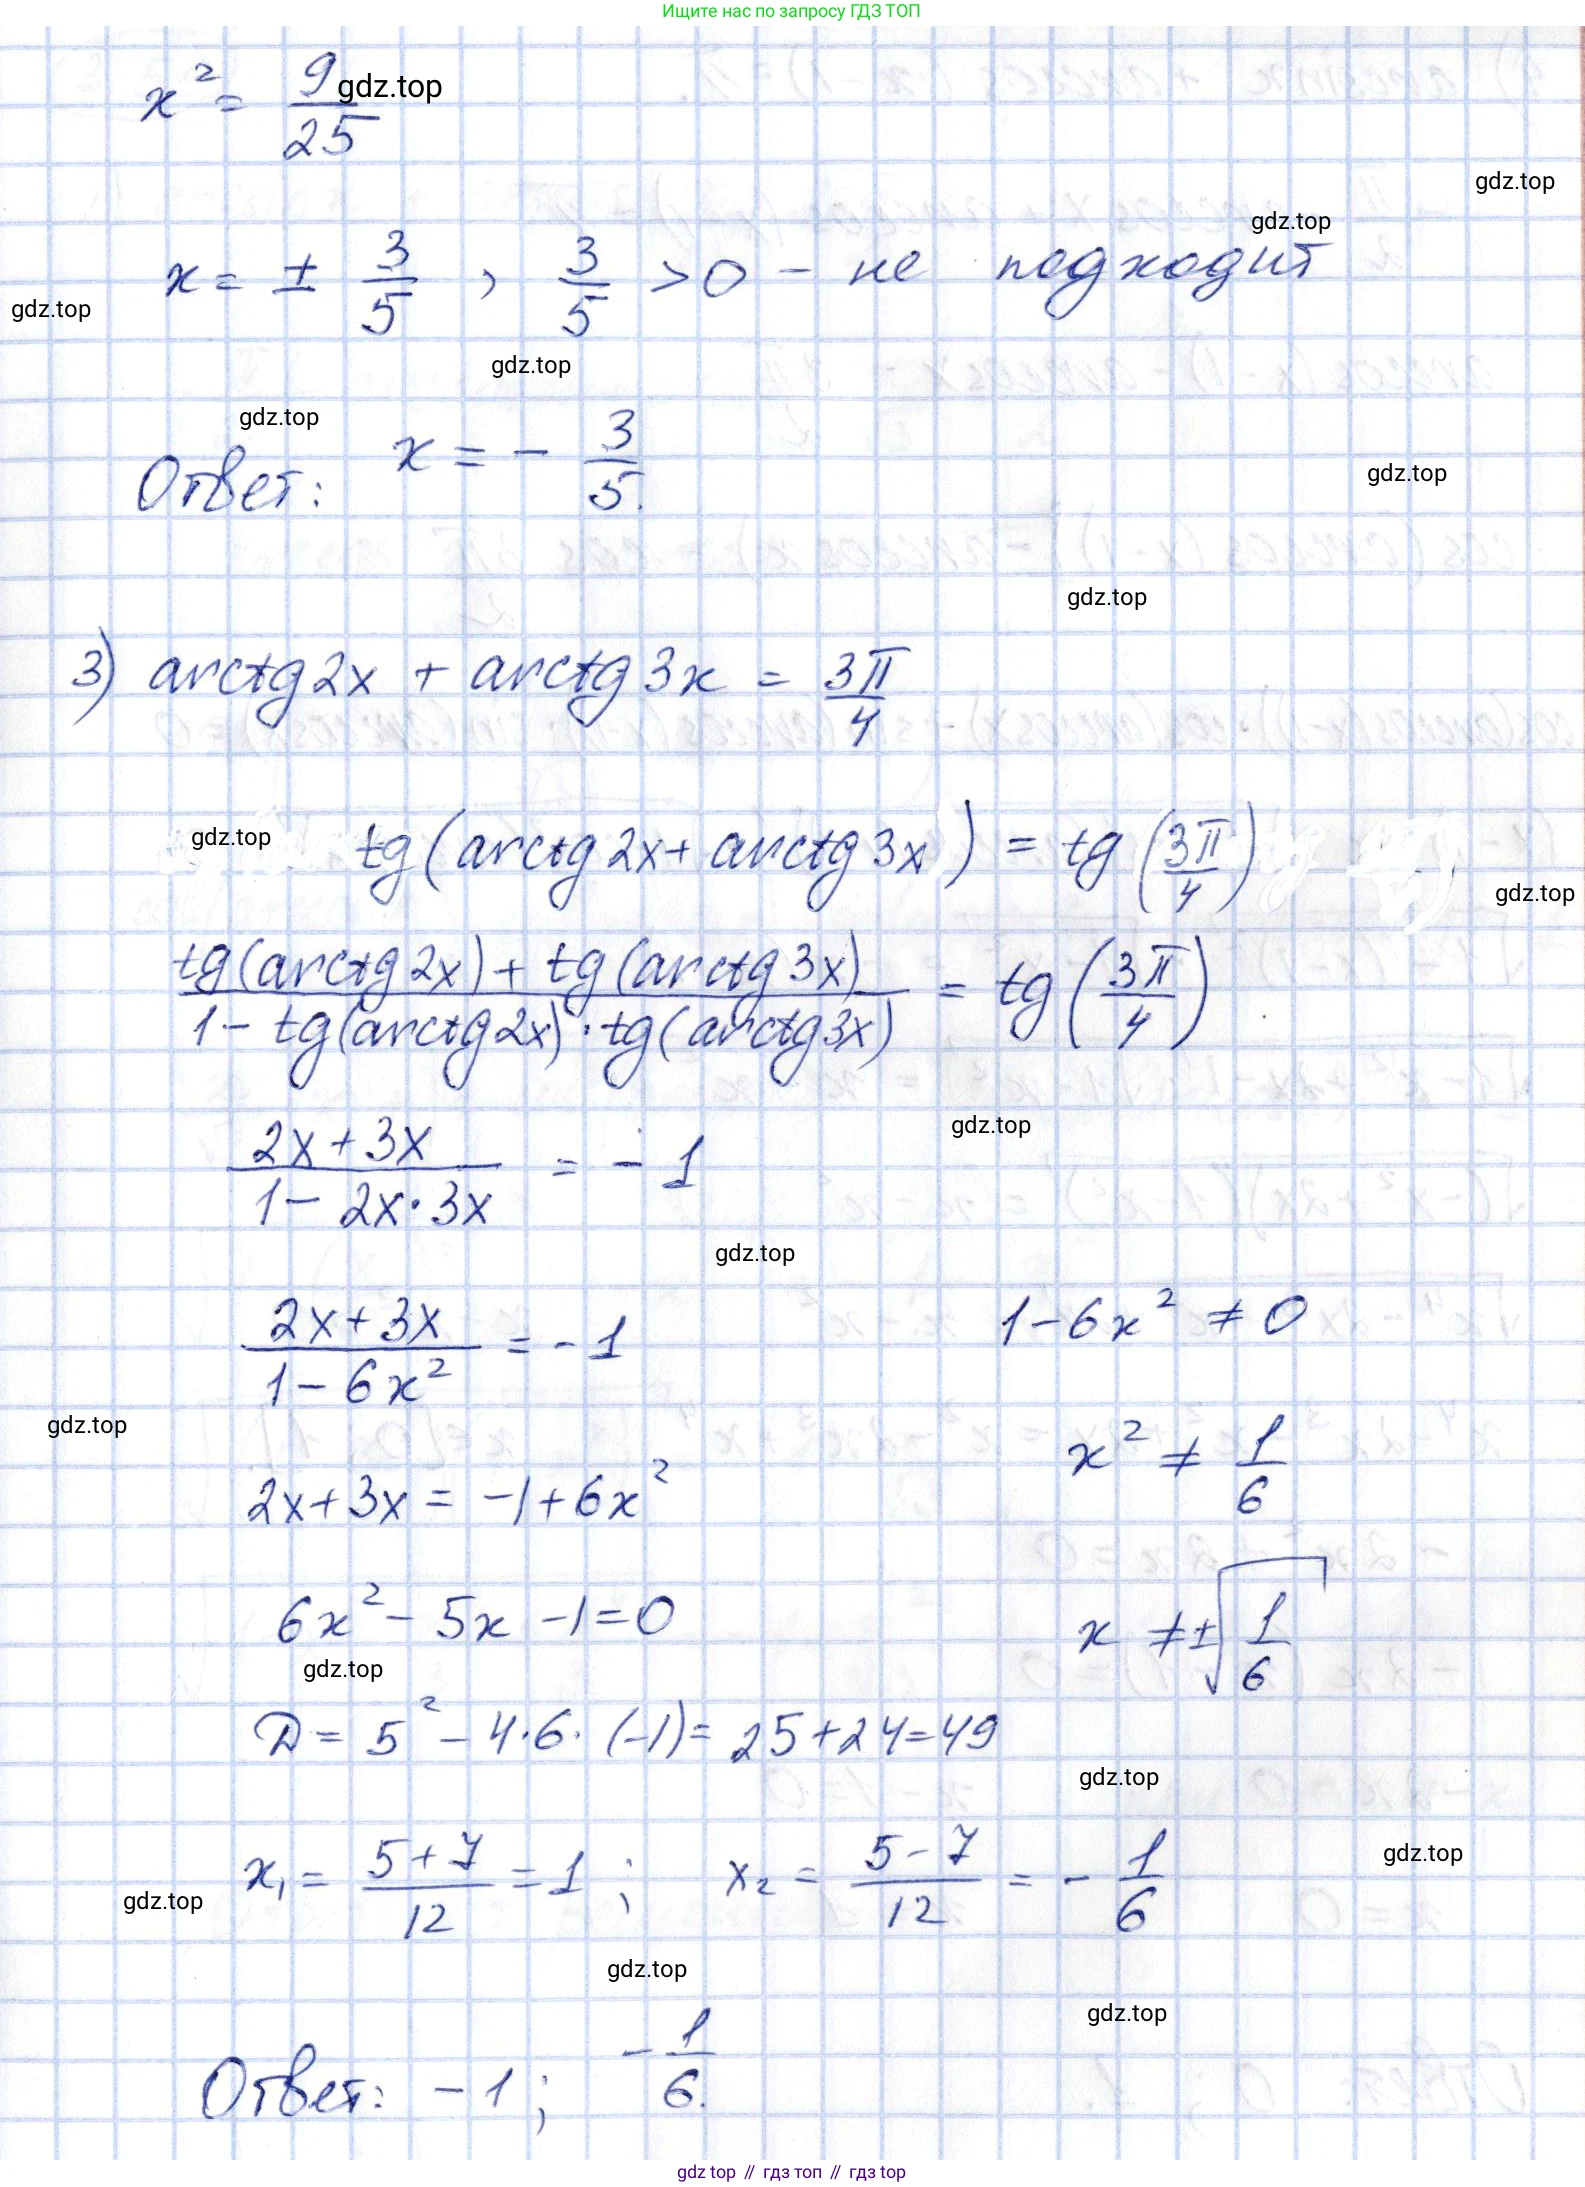 Ищите нас по запросу ГДЗ ТОП
x² = 9/25
gdz.top
gdz.top
gdz.top
x = ± 3/5 , 3/5 > 0 – не подходит
gdz.top
gdz.top
gdz.top
Ответ: x = – 3/5.
gdz.top
gdz.top
3) arctg 2x + arctg 3x = 3π/4
gdz.top
tg (arctg 2x + arctg 3x) = tg (3π/4)
gdz.top
(tg(arctg 2x) + tg(arctg 3x))/(1 – tg(arctg 2x) · tg(arctg 3x)) = tg (3π/4)
gdz.top
(2x + 3x)/(1 – 2x · 3x) = – 1
gdz.top
(2x + 3x)/(1 – 6x²) = – 1
1 – 6x² ≠ 0
gdz.top
x² ≠ 1/6
2x + 3x = –1 + 6x²
6x² – 5x – 1 = 0
x ≠ ±√(1/6)
gdz.top
D = 5² – 4 · 6 · (–1) = 25 + 24 = 49
gdz.top
x₁ = (5 + 7)/12 = 1 ; x₂ = (5 – 7)/12 = – 1/6
gdz.top
gdz.top
gdz.top
gdz.top
Ответ: – 1 ; – 1/6.
gdz top // гдз топ // гдз top